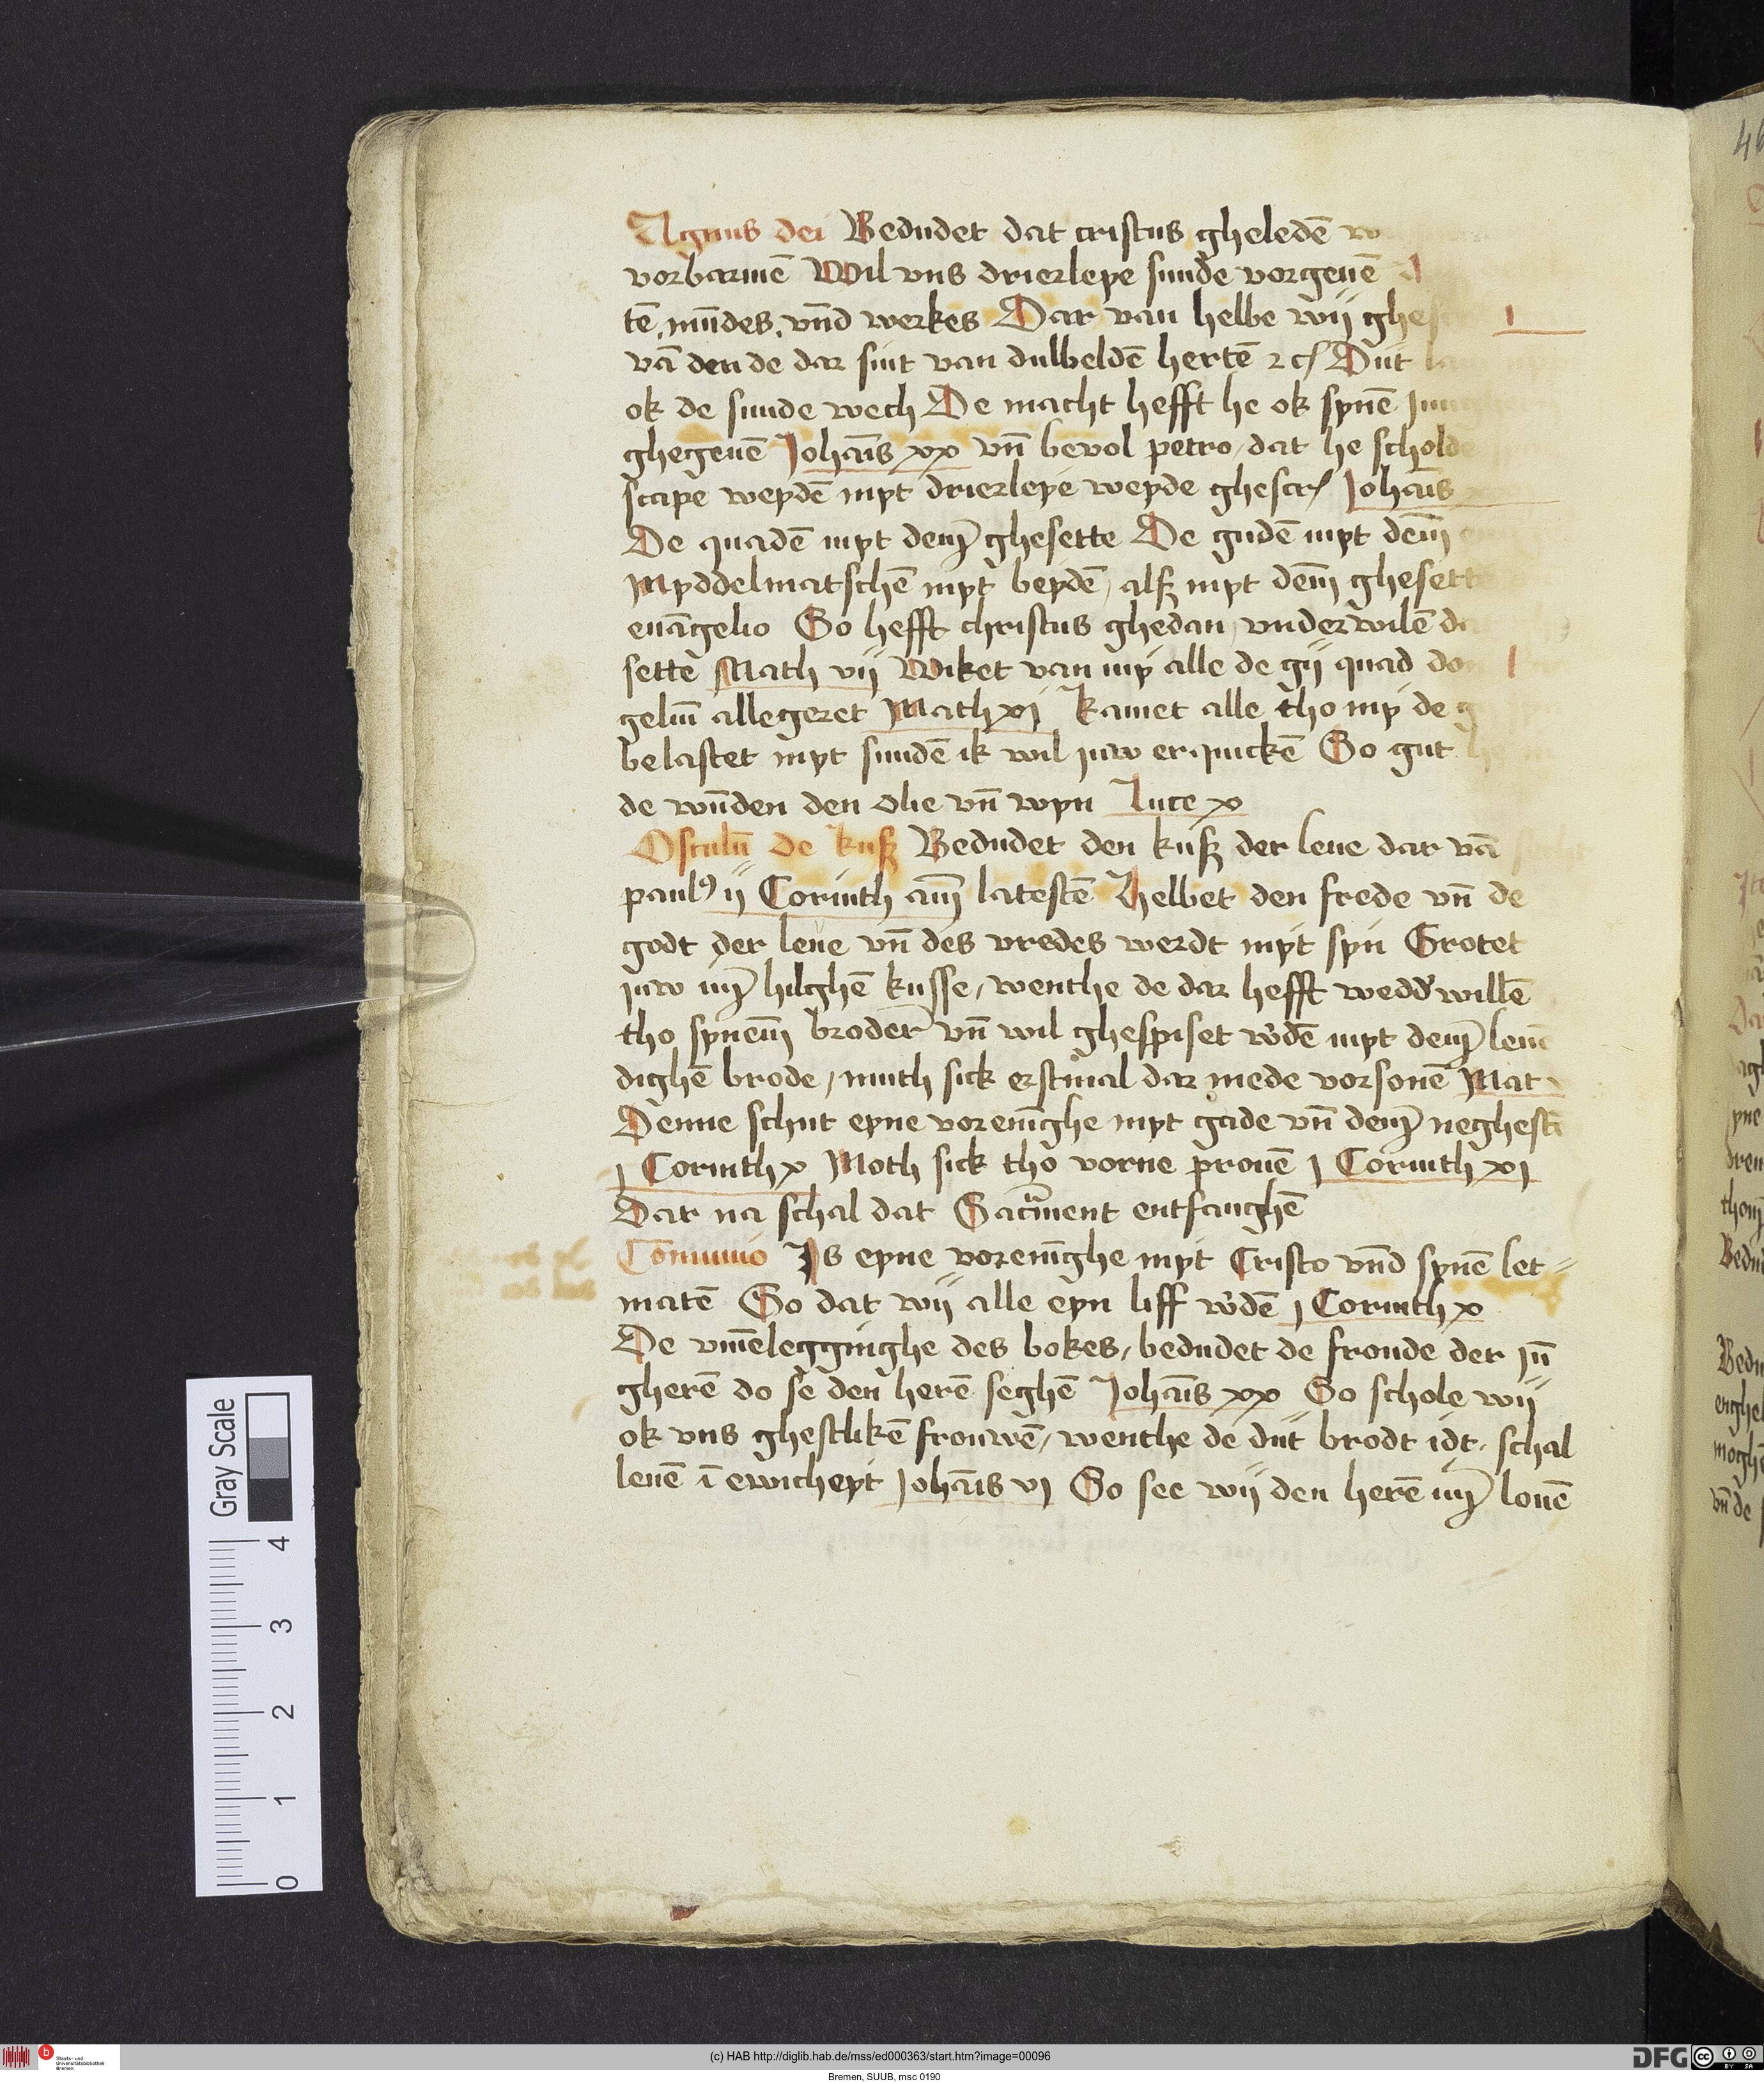 Agnus dei Bedudet dat cristus gheledē
vorbarmē Wil vns drierleye sunde vorgeuē
tē. mūdes. vnd werkes Dar van helbe wij
vā den de dar sint van dulbeldē hertē Dut
ok de sunde wech De macht hefft he ok synē
ghegeuē Johāis xx vn̄ bevol petro, dat he scholde
scape weydē myt drierleye weyde ghescr Johāis
De quadē myt dem ghesette De gudē myt dem
Myddelmatschē myt beydē, alß myt dem ghesette
euāgelio So hefft christus ghedan, vnderwilē
sette Math vij Wiket van my alle de gij quad
geliū allegeret Math xi Kamet alle tho my de
belastet myt sundē ik wil juw erquickē So gut
de wūden den olie vn̄ wyn Luce x
Osculū De kuß Bedudet den kuß der leue dar vā
paul⁹ ij Corinth am latestē Helbet den frede vn̄ de
godt der leue vn̄ des vredes werdt myt syn Grotet
juw im hilghē kusse, wenthe de dar hefft wedd' willē
tho synem broder vn̄ wil ghespiset w'dē myt dem leuē
dighē brode, muth sick erstmal dar mede vorsonē Mat
Denne schut eyne vorenīghe myt gade vn̄ dem neghestē
j Corinth x Moth sick tho vorne prouē j Corinth xj
Dar na schal dat Sacrment entfanghē
Cōmunio Js eyne vorenīghe myt Cristo vnd synē let
matē So dat wij alle eyn liff w'dē j Corinth x
De vmelegginghe des bokes, bedudet de froude der jū
gherē do se den herē seghē Johāis xx So schole wij
ok vns ghestlikē frouwē, wenthe de dut brodt idt, schal
leuē ī ewicheyt Johāis vj So see wij den herē im louē
Gray Scale
4
3
2
1
0
(c) HAB http://diglib.hab.de/mss/ed000363/start.htm?image=00096
Staats- und Universitätsbibliothek Bremen
DFG
Bremen, SUUB, msc 0190